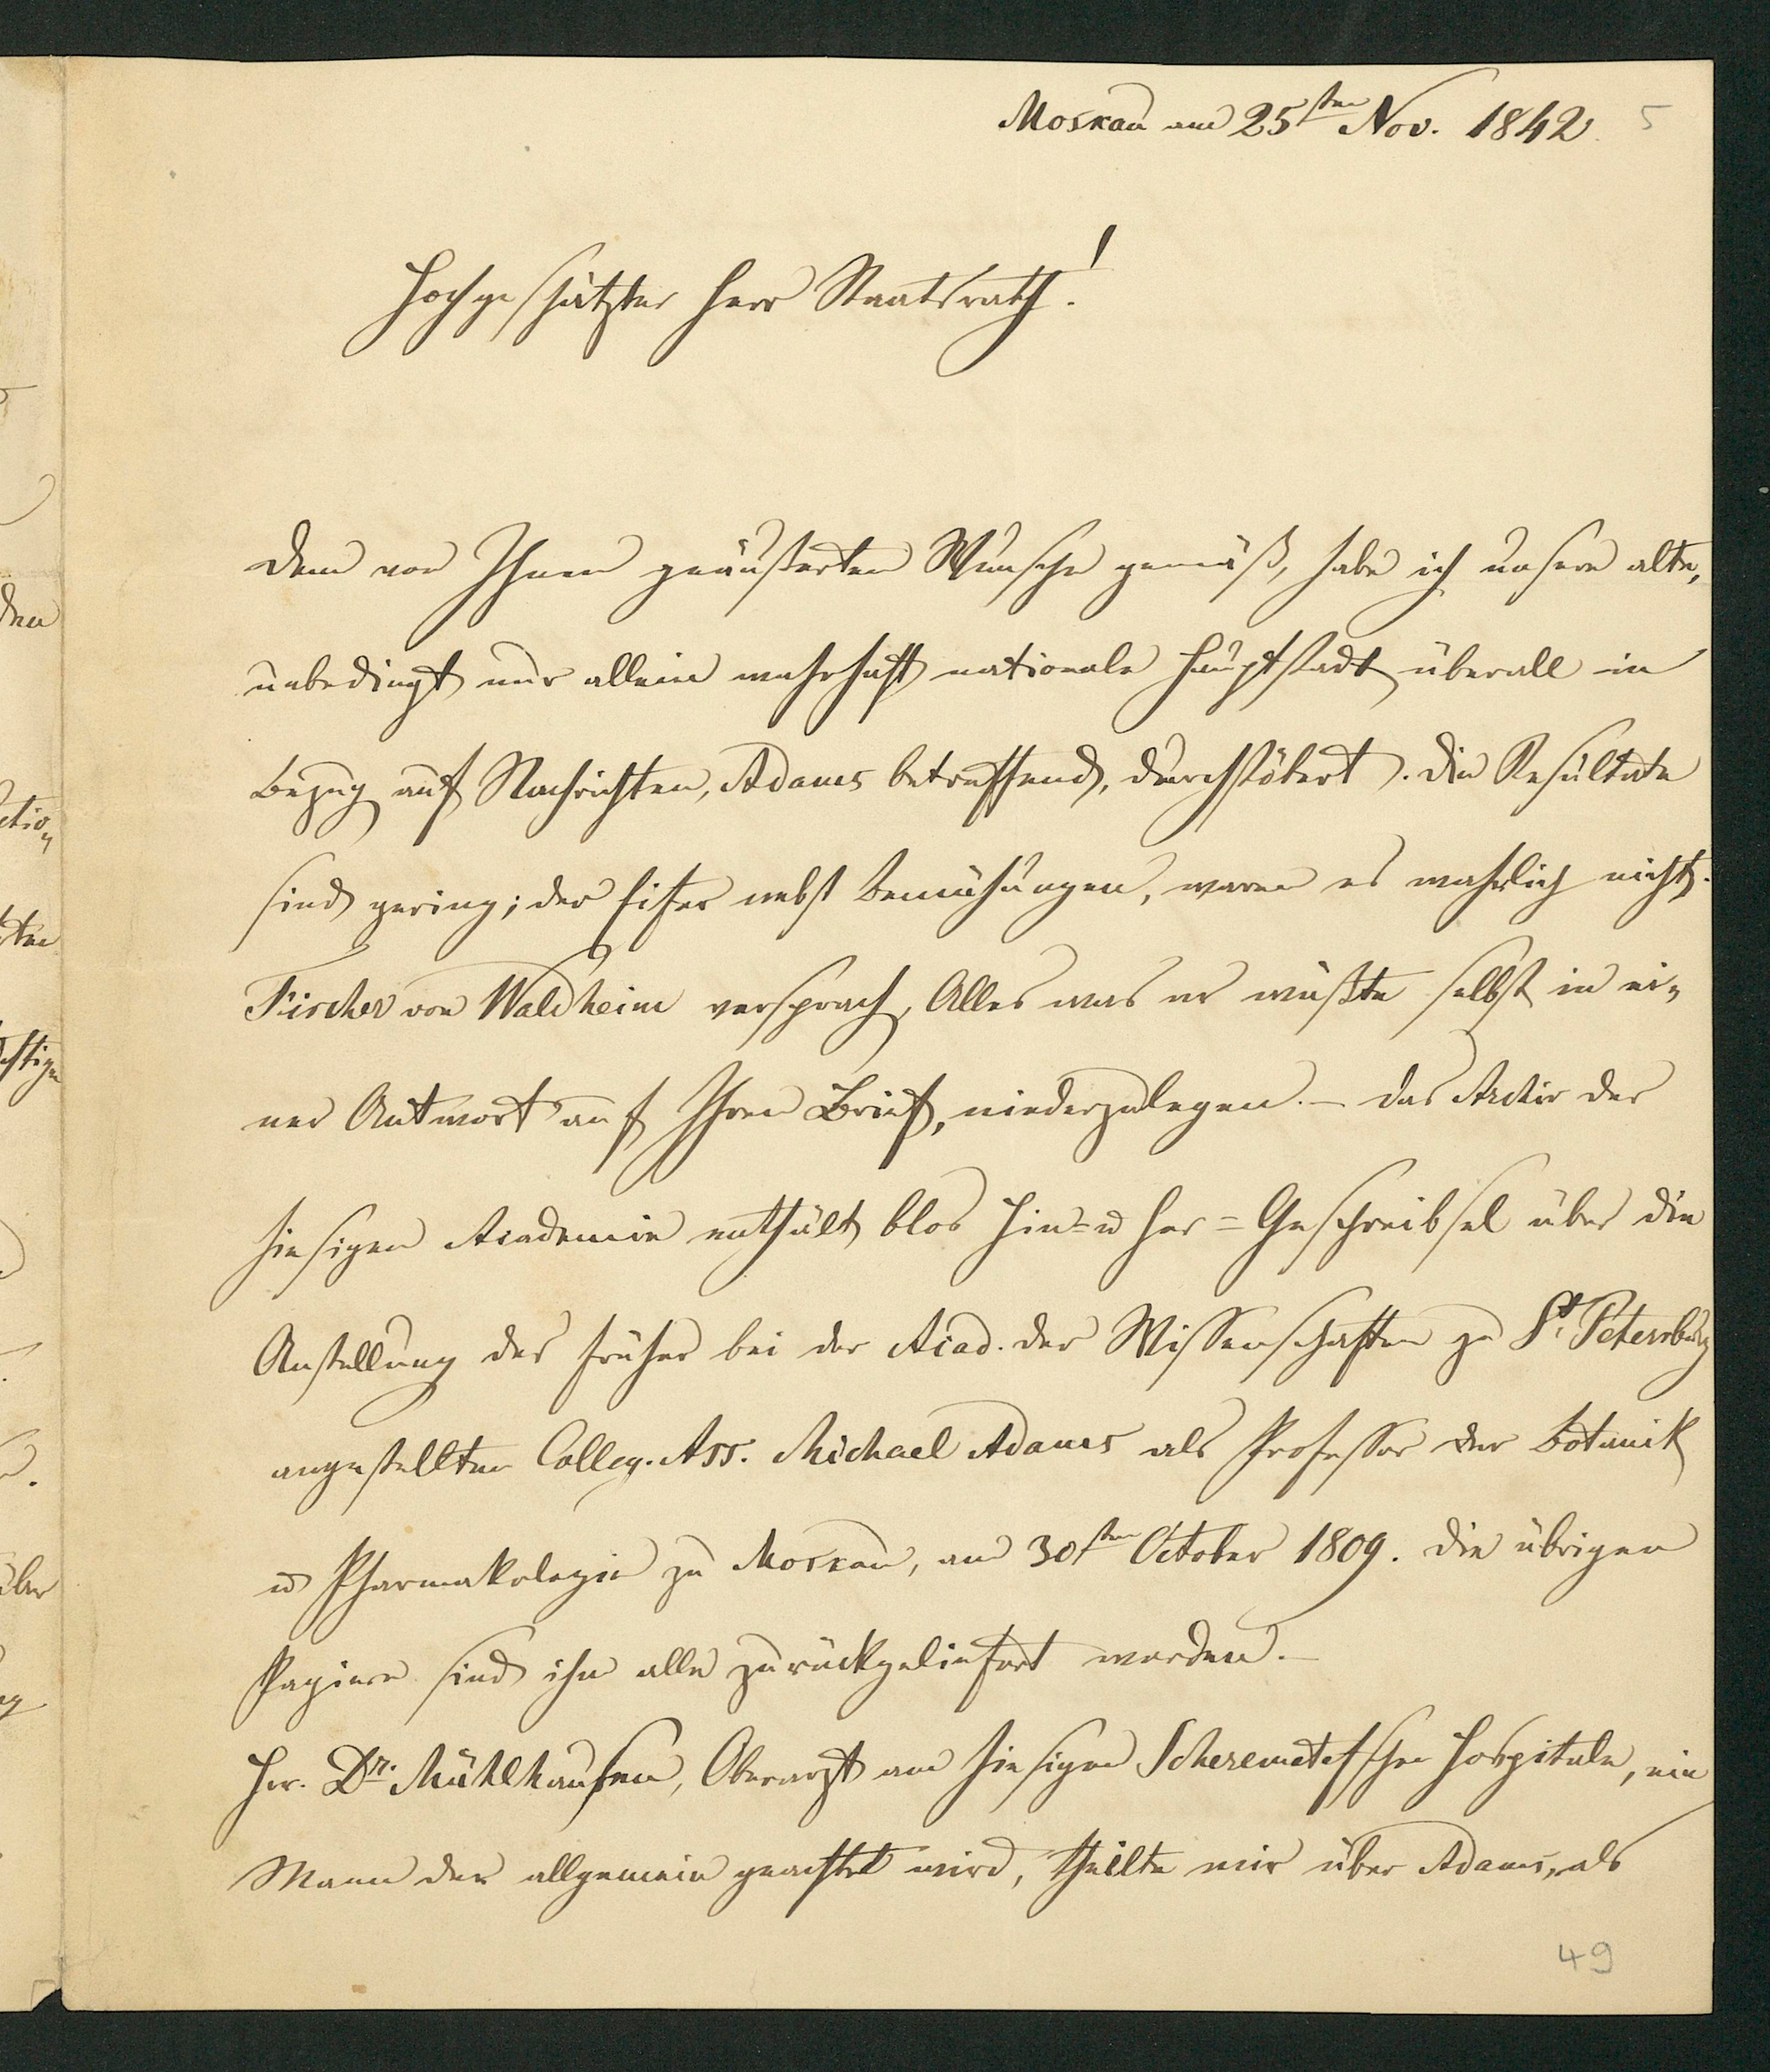 Moskau am 25sten Nov. 1842. 5
Hochgeschätzter Herr Staatsrath!
Dem von Ihnen geäußerten Wunsche gemäß, habe ich unsere alte,
unbedingt nur allein wahrhaft nationale Hauptstadt überall in
Bezug auf Nachrichten, Adams betreffend, durchstöbert. Die Resultate
sind gering; der Eifer nebst Bemühungen, waren es wahrlich nicht.
Fischer von Waldheim versprach, Alles was er wüßte selbst in ei-
ner Antwort auf Ihren Brief, niederzulegen. – Das Archiv der
hiesigen Academie enthält blos Hin- u Her-Geschreibsel über die
Anstellung des früher bei der Acad. der Wissenschaften zu St. Petersburg
angestellten Colleg. Ass. Michael Adams als Professor der Botanik
u Pharmakologie zu Moskau, am 30sten October 1809. Die übrigen
Papiere sind ihm alle zurückgeliefert worden. –
Hr. Dr. Mühlhausen, Oberarzt am hiesigen Scheremetefschen Hospitale, ein
Mann der allgemein geachtet wird, theilte mir über Adams, als
49